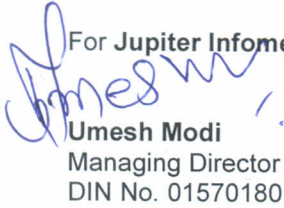 For Jupiter Infome
Umesh
Umesh Modi
Managing Director
DIN No. 01570180